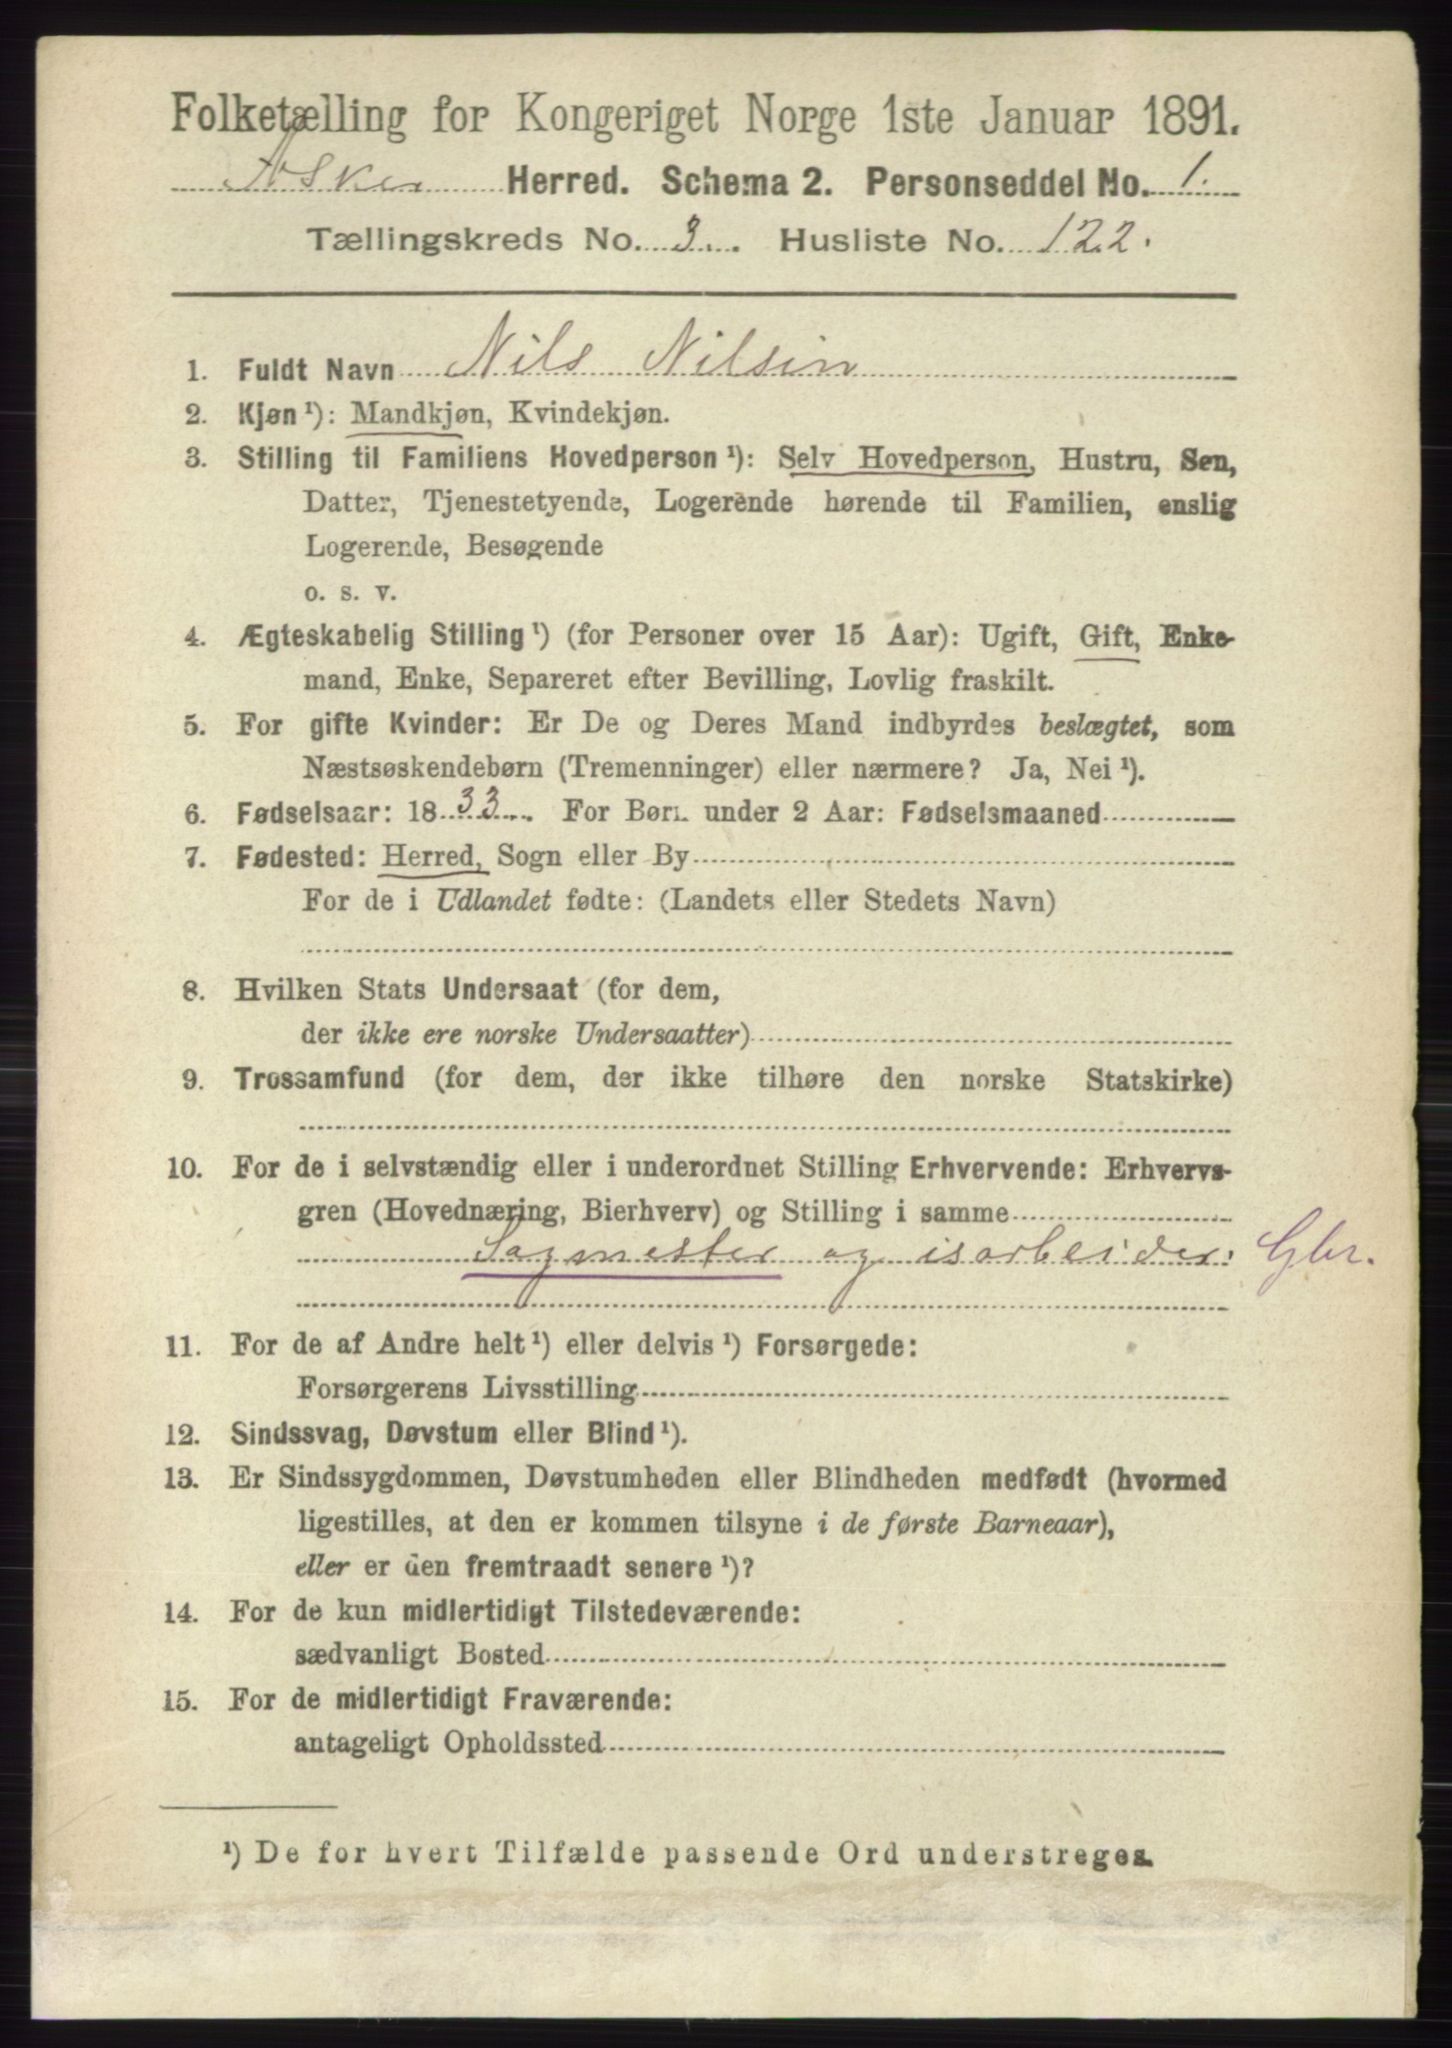 Folketælling for Kongeriget Norge 1ste Januar 1891.
Asker Herred. Schema 2. Personseddel No. 1.
Tællingskreds No. 3. Husliste No. 122.
1. Fuldt Navn Nils Nilsin
2. Kjøn ¹): Mandkjøn, Kvindekjøn.
3. Stilling til Familiens Hovedperson ¹): Selv Hovedperson, Hustru, Søn,
Datter, Tjenestetyende, Logerende hørende til Familien, enslig
Logerende, Besøgende
o. s. v.
4. Ægteskabelig Stilling ¹) (for Personer over 15 Aar): Ugift, Gift, Enke-
mand, Enke, Separeret efter Bevilling, Lovlig fraskilt.
5. For gifte Kvinder: Er De og Deres Mand indbyrdes beslægtet, som
Næstsøskendebørn (Tremenninger) eller nærmere? Ja, Nei ¹).
6. Fødselsaar: 1833. For Børn under 2 Aar: Fødselsmaaned
7. Fødested: Herred, Sogn eller By
For de i Udlandet fødte: (Landets eller Stedets Navn)
8. Hvilken Stats Undersaat (for dem,
der ikke ere norske Undersaatter)
9. Trossamfund (for dem, der ikke tilhøre den norske Statskirke)
10. For de i selvstændig eller i underordnet Stilling Erhvervende: Erhvervs-
gren (Hovednæring, Bierhverv) og Stilling i samme
Sagmester og isarbeider. Gbr.
11. For de af Andre helt ¹) eller delvis ¹) Forsørgede:
Forsørgerens Livsstilling
12. Sindssvag, Døvstum eller Blind ¹).
13. Er Sindssygdommen, Døvstumheden eller Blindheden medfødt (hvormed
ligestilles, at den er kommen tilsyne i de første Barneaar),
eller er den fremtraadt senere ¹)?
14. For de kun midlertidigt Tilstedeværende:
sædvanligt Bosted
15. For de midlertidigt Fraværende:
antageligt Opholdssted
¹) De for hvert Tilfælde passende Ord understreges.